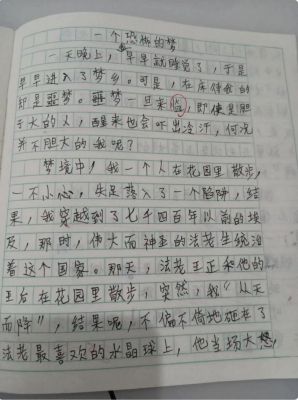 一个恐怖的梦
一天晚上，早早就睡觉了，于是
早早进入了梦乡。可是，在床伴我的
却是噩梦。噩梦一旦来临，即使是胆
子大的人，醒来也会吓出冷汗，何况
并不胆大的我呢？
梦境中，我一个人在花园里散步，
一不小心，失足落入了一个陷阱，结
果，我穿越到了七千四百年以前的埃
及，那时，伟大而神圣的法老生统治
着这个国家。那天，法老王正和他的
王后在花园里散步，突然，我“从天
而降”，结果呢，不偏不倚地砸在了
法老最喜欢的水晶球上，他当场大怒，